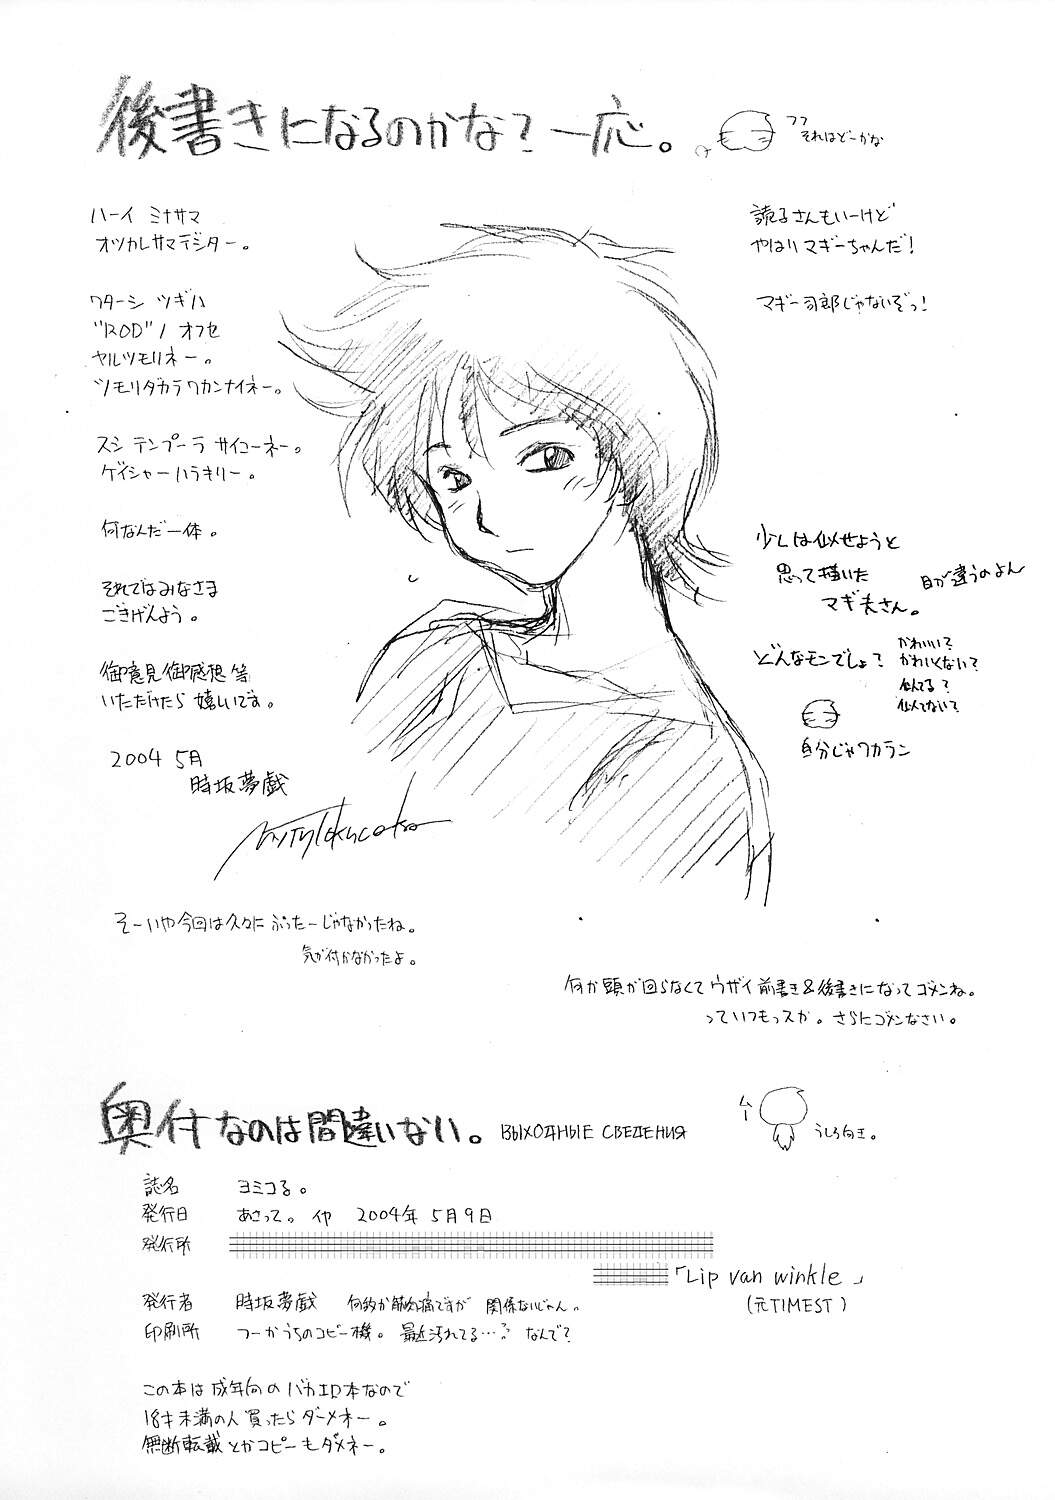 後書きになるのかな?一応。
フフ
それはどーかな
ハーイ ミナサマ
オツカレサマデシター。
ワターシ ツギハ
"ROD"ノ オフセ
ヤルツモリネー。
ツモリタカラワカンナイネー。
スシ テンプーラ サイコーネー。
ゲイシャーハラキリー。
何なんだ一体。
それではみなさま
ごきげんよう。
御意見御感想等
いただけたら嬉しいです。
2004 5月
時坂夢戯
読子さんもいーけど
やはりマギーちゃんだ!
マギー司郎じゃないぞっ!
少しは似せようと
思って描いた
マギ夫さん。
目が違うのよん
どんなモンでしょ?
かわいい?
かわいくない?
似てる?
似てない?
自分じゃワカラン
そーいや今回は久々にぶったーじゃなかったね。
気が付かなかったよ。
何か頭が回らなくてウザイ前書き&後書きになってゴメンね。
っていつもっスか。さらにゴメンなさい。
奥付なのは間違いない。
ВЫХОДНЫЕ СВЕДЕНИЯ
ムー
うしろ向き。
誌名 ヨミコる。
発行日 あさって。イヤ 2004年5月9日
発行所
「Lip van winkle」
(元TIMEST)
発行者 時坂夢戯 何故か筋肉痛ですが 関係ないじゃん。
印刷所 つーかうちのコピー機。最近汚れてる…? なんで?
この本は成年向のバカエロ本なので
18才未満の人買ったらダーメネー。
無断転載とかコピーもダメネー。